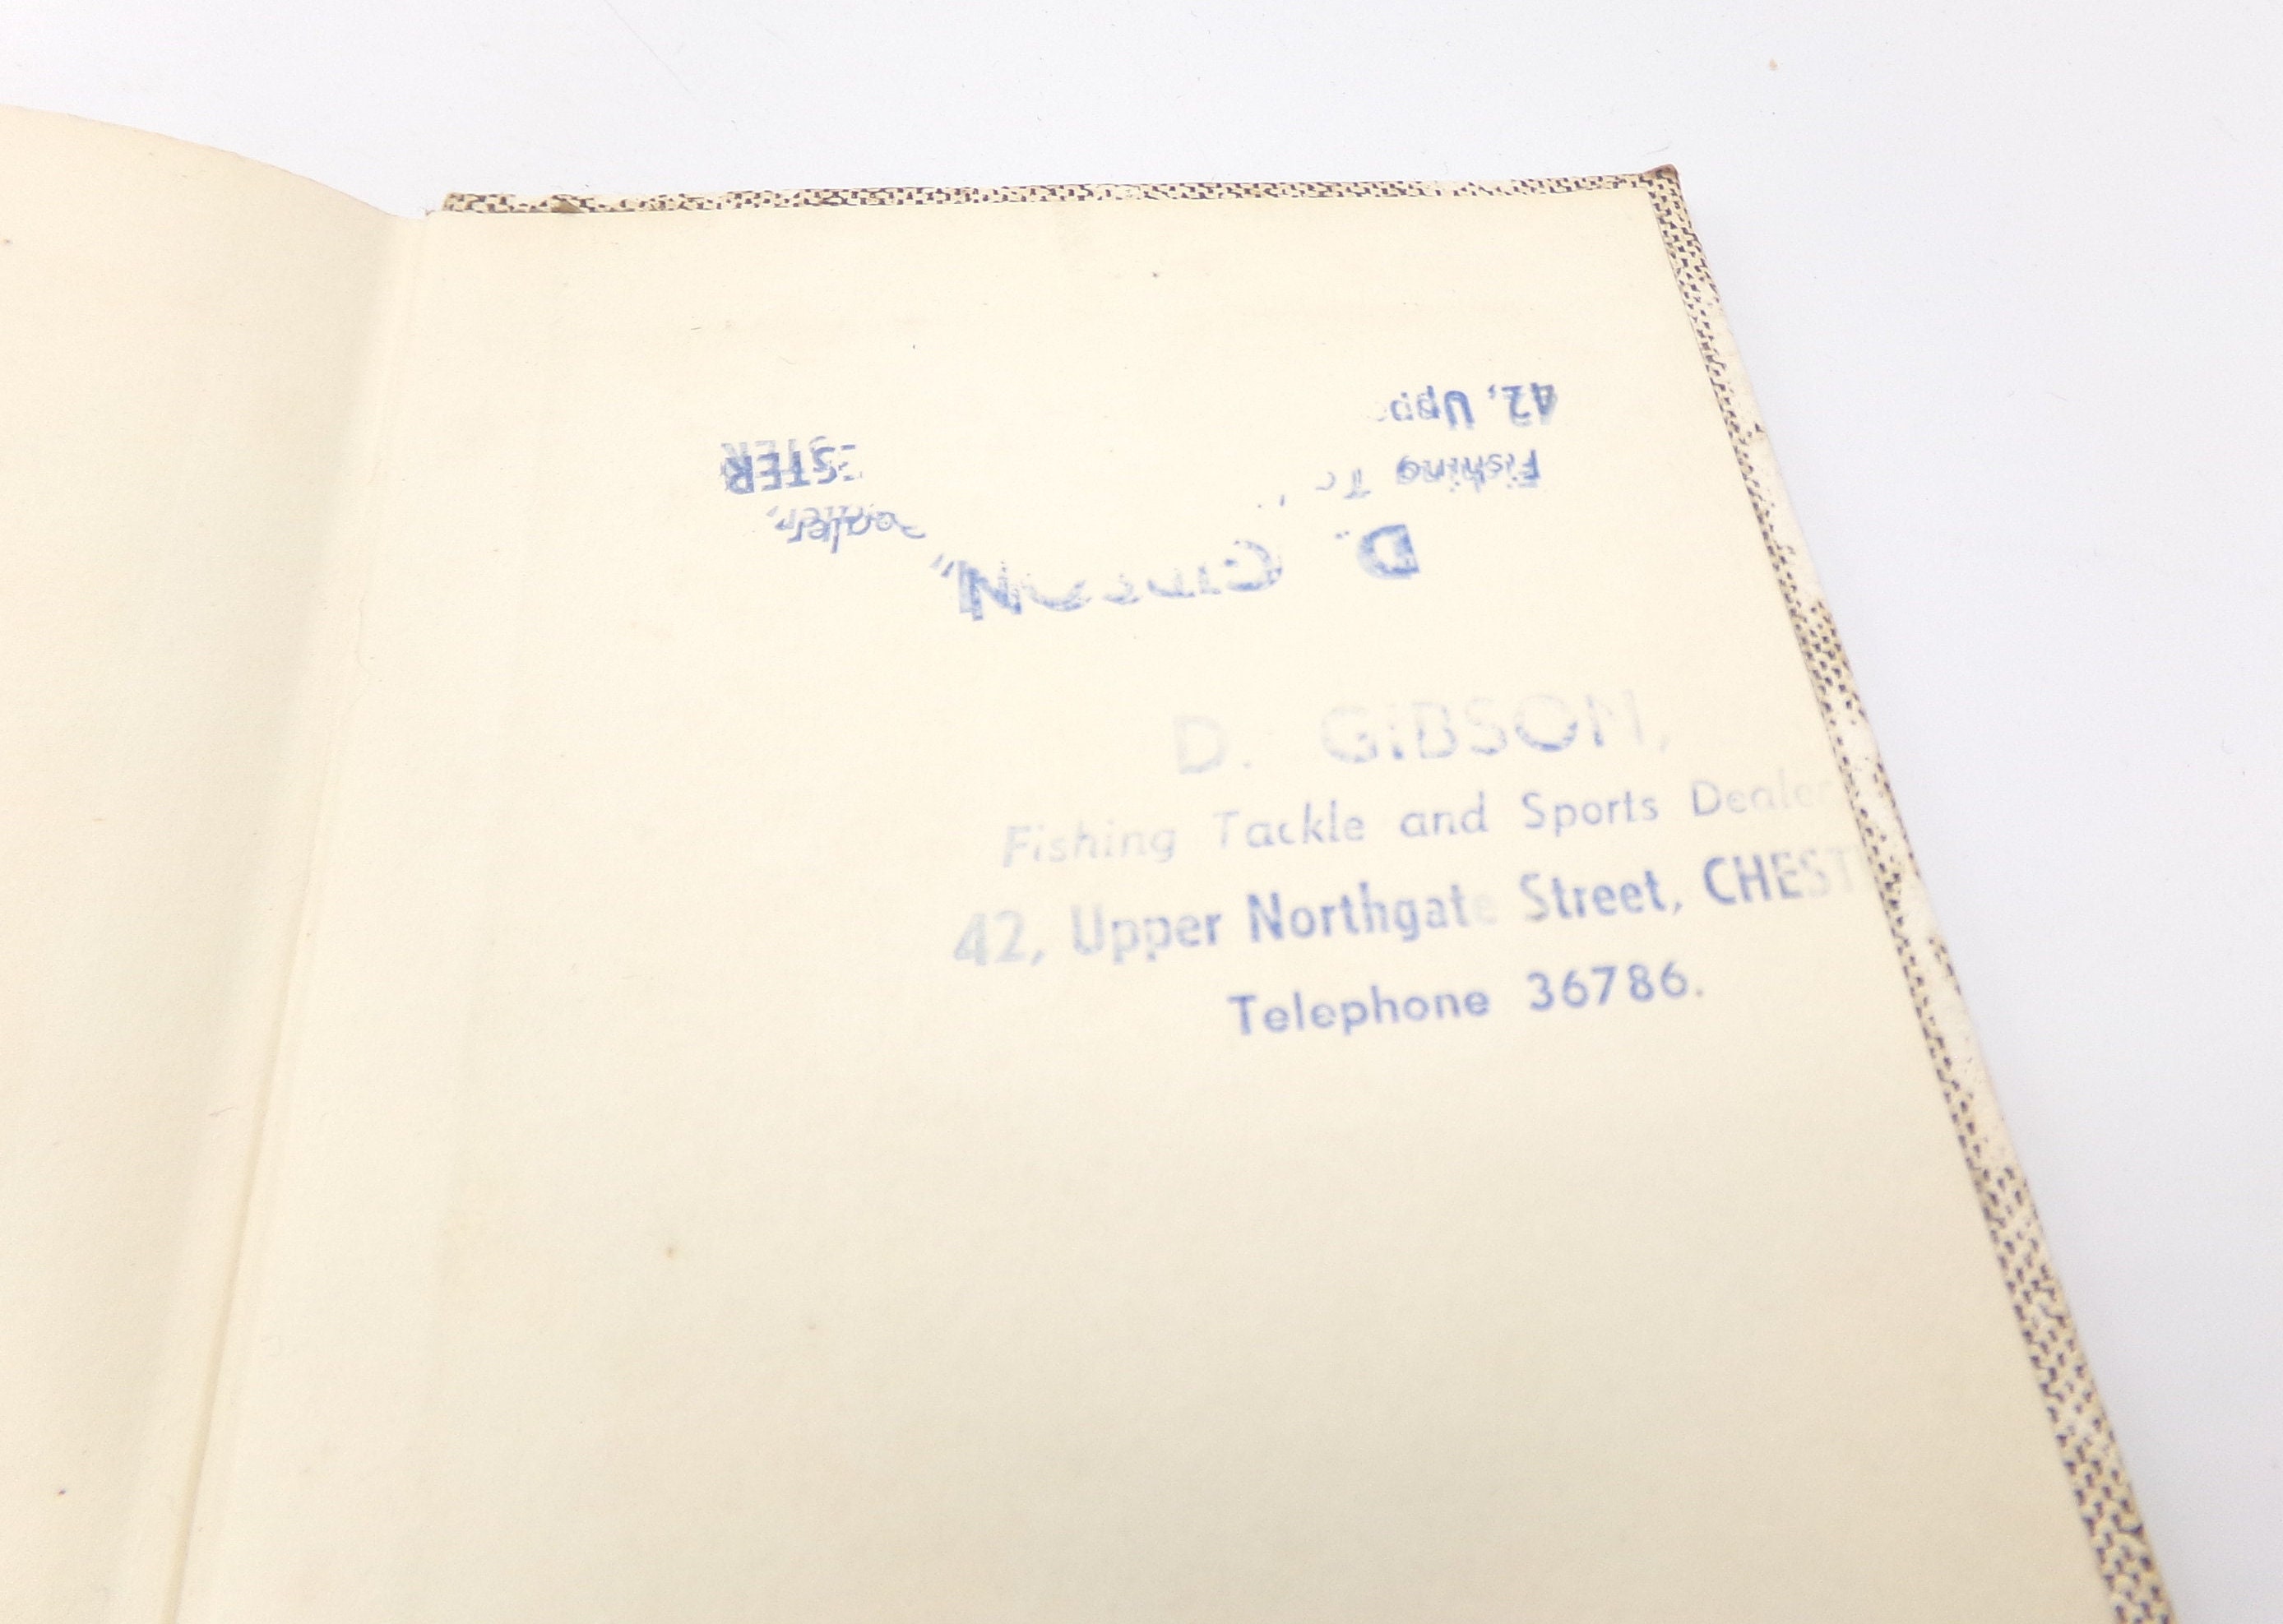 42, Upp
ESTER
Fishing
Dealer,
D. GIBSON,
D. GIBSON,
Fishing Tackle and Sports Dealer
42, Upper Northgate Street, CHEST
Telephone 36786.